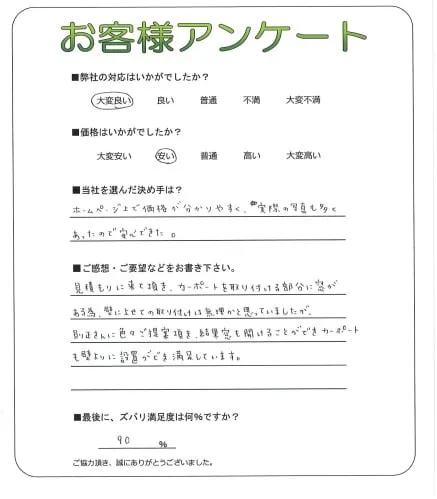 お客様アンケート
■弊社の対応はいかがでしたか?
大変良い 良い 普通 不満 大変不満
■価格はいかがでしたか?
大変安い 安い 普通 高い 大変高い
■当社を選んだ決め手は?
ホームページ上で価格が分かりやすく、実際の写真も多く
あったので安心できた。
■ご感想・ご要望などをお書き下さい。
見積もりに来て頂き、カーポートを取り付ける部分に窓が
ある為、壁によせての取り付けは無理かと思っていましたが、
さんに色々ご提案頂き、結果窓も開けることができカーポート
も壁よりに設置ができ満足しています。
■最後に、ズバリ満足度は何%ですか?
90 %
ご協力頂き、誠にありがとうございました。